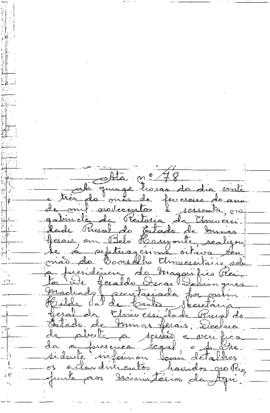 Ata nº 78
Às quinze horas do dia vinte
e três do mês de fevereiro do ano
de mil novecentos e sessenta, no
gabinete da Reitoria da Universi-
dade Rural do Estado de Minas
Gerais em Belo Horizonte, realizou-
se a septuagésima oitava reu-
nião do Conselho Universitário sob
a presidência do Magnífico Rei-
tor Dr. Geraldo Oscar Domingues
Machado, secretariada por mim
Hilda
Secretária
Geral da Universidade Rural do
Estado de Minas Gerais. Declara-
da aberta a sessão e verifica-
da a presença legal o Pre-
sidente informou com detalhes
os entendimentos havidos no Rio
junto aos Ministérios da Agri-